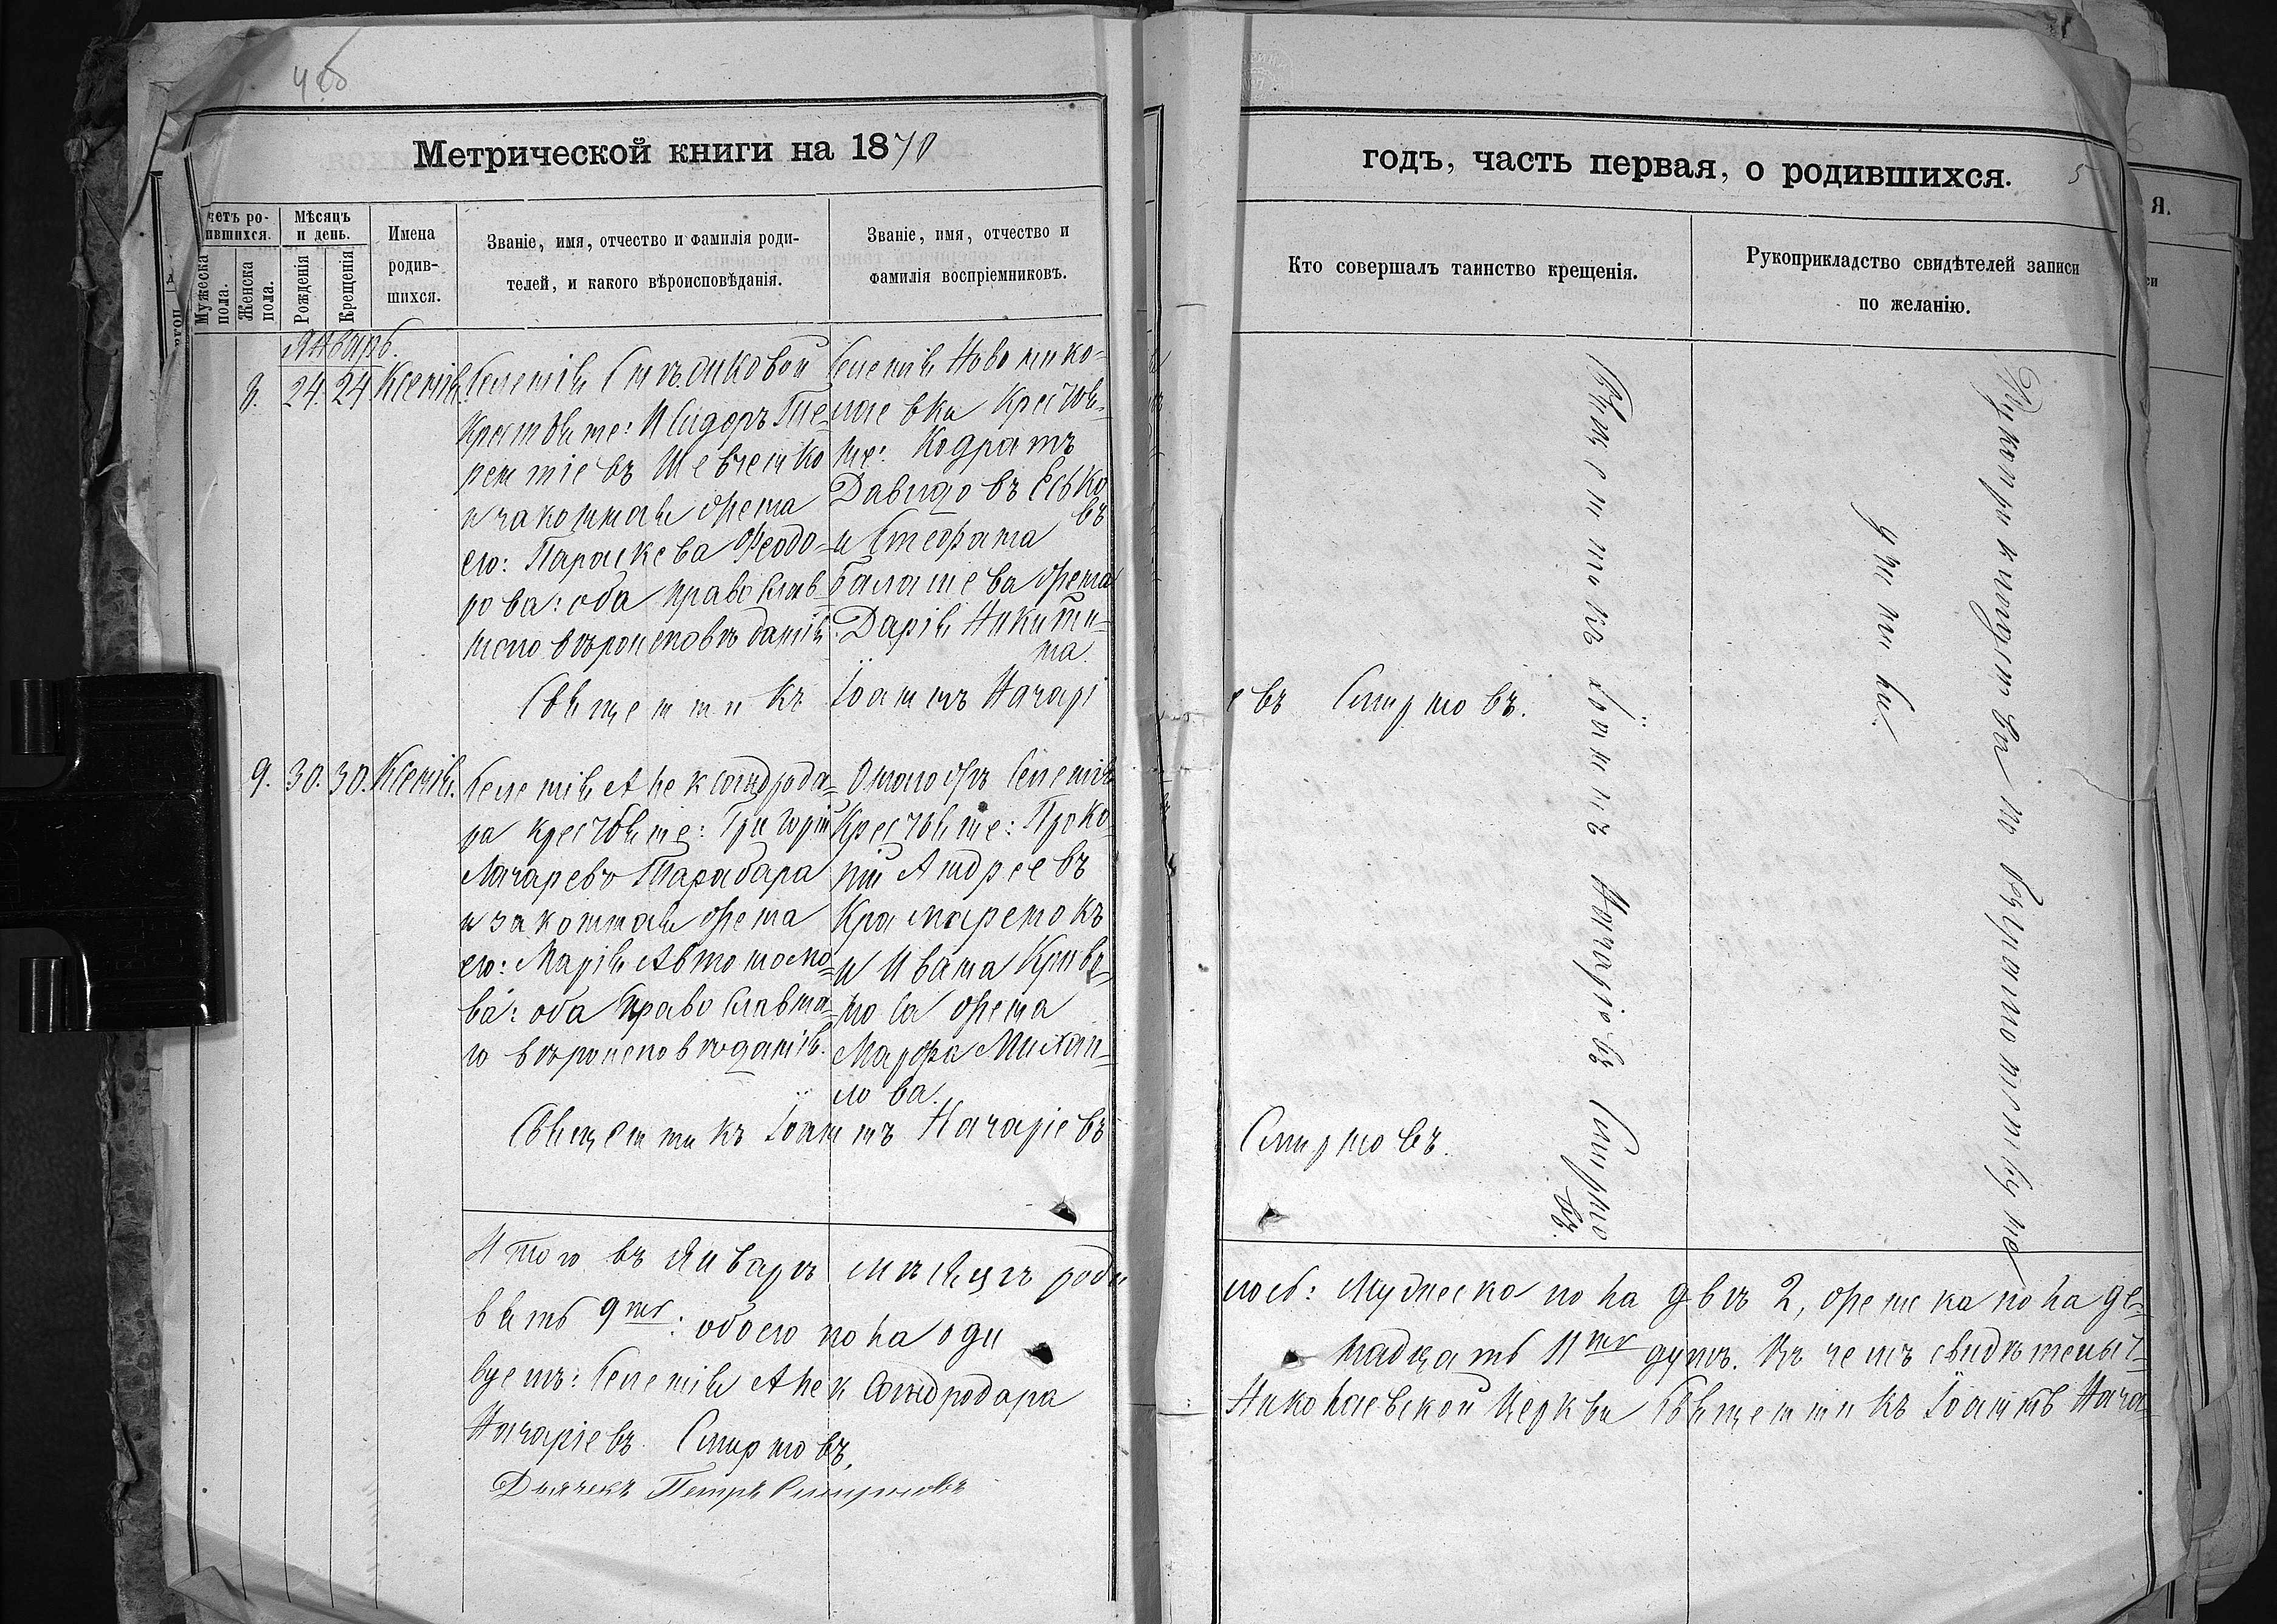 Метрической книги на 1870
годъ, часть первая, о родившихся.
5
четъ ро-
ившихся.
Мужеска пола.
Женска пола.
Мѣсяцъ и день.
Рожденія
Крещенія
Имена родив-шихся.
Званіе, имя, отчество и фамилія роди-
телей, и какого вѣроисповѣданія.
Званіе, имя, отчество и
фамилія воспріемниковъ.
Кто совершалъ таинство крещенія.
Рукоприкладство свидѣтелей записи
по желанію.
Январь.
8. 24. 24 Ксенія.
Селенія
Крестьяне: Исидоръ Те-
рентіевъ Шевченко
и законная жена
его: Параскева Феодо-
рова: оба православ-
наго вѣроисповѣданія.
Селенія Новонико-
лаевки Крестья-
не: Кодратъ
Давидовъ Есько
въ
и Стефана
Балашева жена
Дарія Никити-
на.
Священникъ Іоаннъ Назарі
евъ Смирновъ.
9. 30. 30. Ксенія.
Селенія Александрода-
ра крестьяне: Григорій
Лазаревъ Тарабара
и законная жена
его: Марія Автономо-
ва: оба православна-
го вѣроисповѣданія.
Онагожъ Селенія
Крестьяне: Проко-
пій Андреевъ
Крамаренокъ
и Ивана Криво-
носа жена
Марфа Михаи-
лова.
Священникъ Іоаннъ Назаріевъ
Смирновъ.
Священникъ Іоаннъ Назаріевъ Смирно
въ.
Рукоприкладства по безграмотству не
учинили.
Итого въ Январѣ мѣсяцѣ роди
лось: Мужеска пола двѣ 2, женска пола де-
вять 9ть: обоего пола оди
надцать 11ть душъ. Въ чемъ свидѣтельст-
вуетъ: Селенія Александродара
Николаевской Церкви Священникъ Іоаннъ Наза-
Назаріевъ Смирновъ.
Дьячекъ Петръ Смирновъ